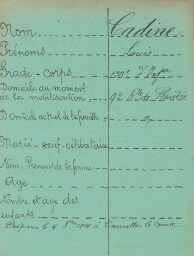 Nom Cadine
Prénoms Louis
Grade - Corps
Domicile au moment
de la mobilisation 92
Domicile actuel de la famille
Marié - veuf - célibataire
Nom, Prénom de la femme
Age
Nombre et âge des
enfants
Disparu le 4 1914 à Courcelles le Comte